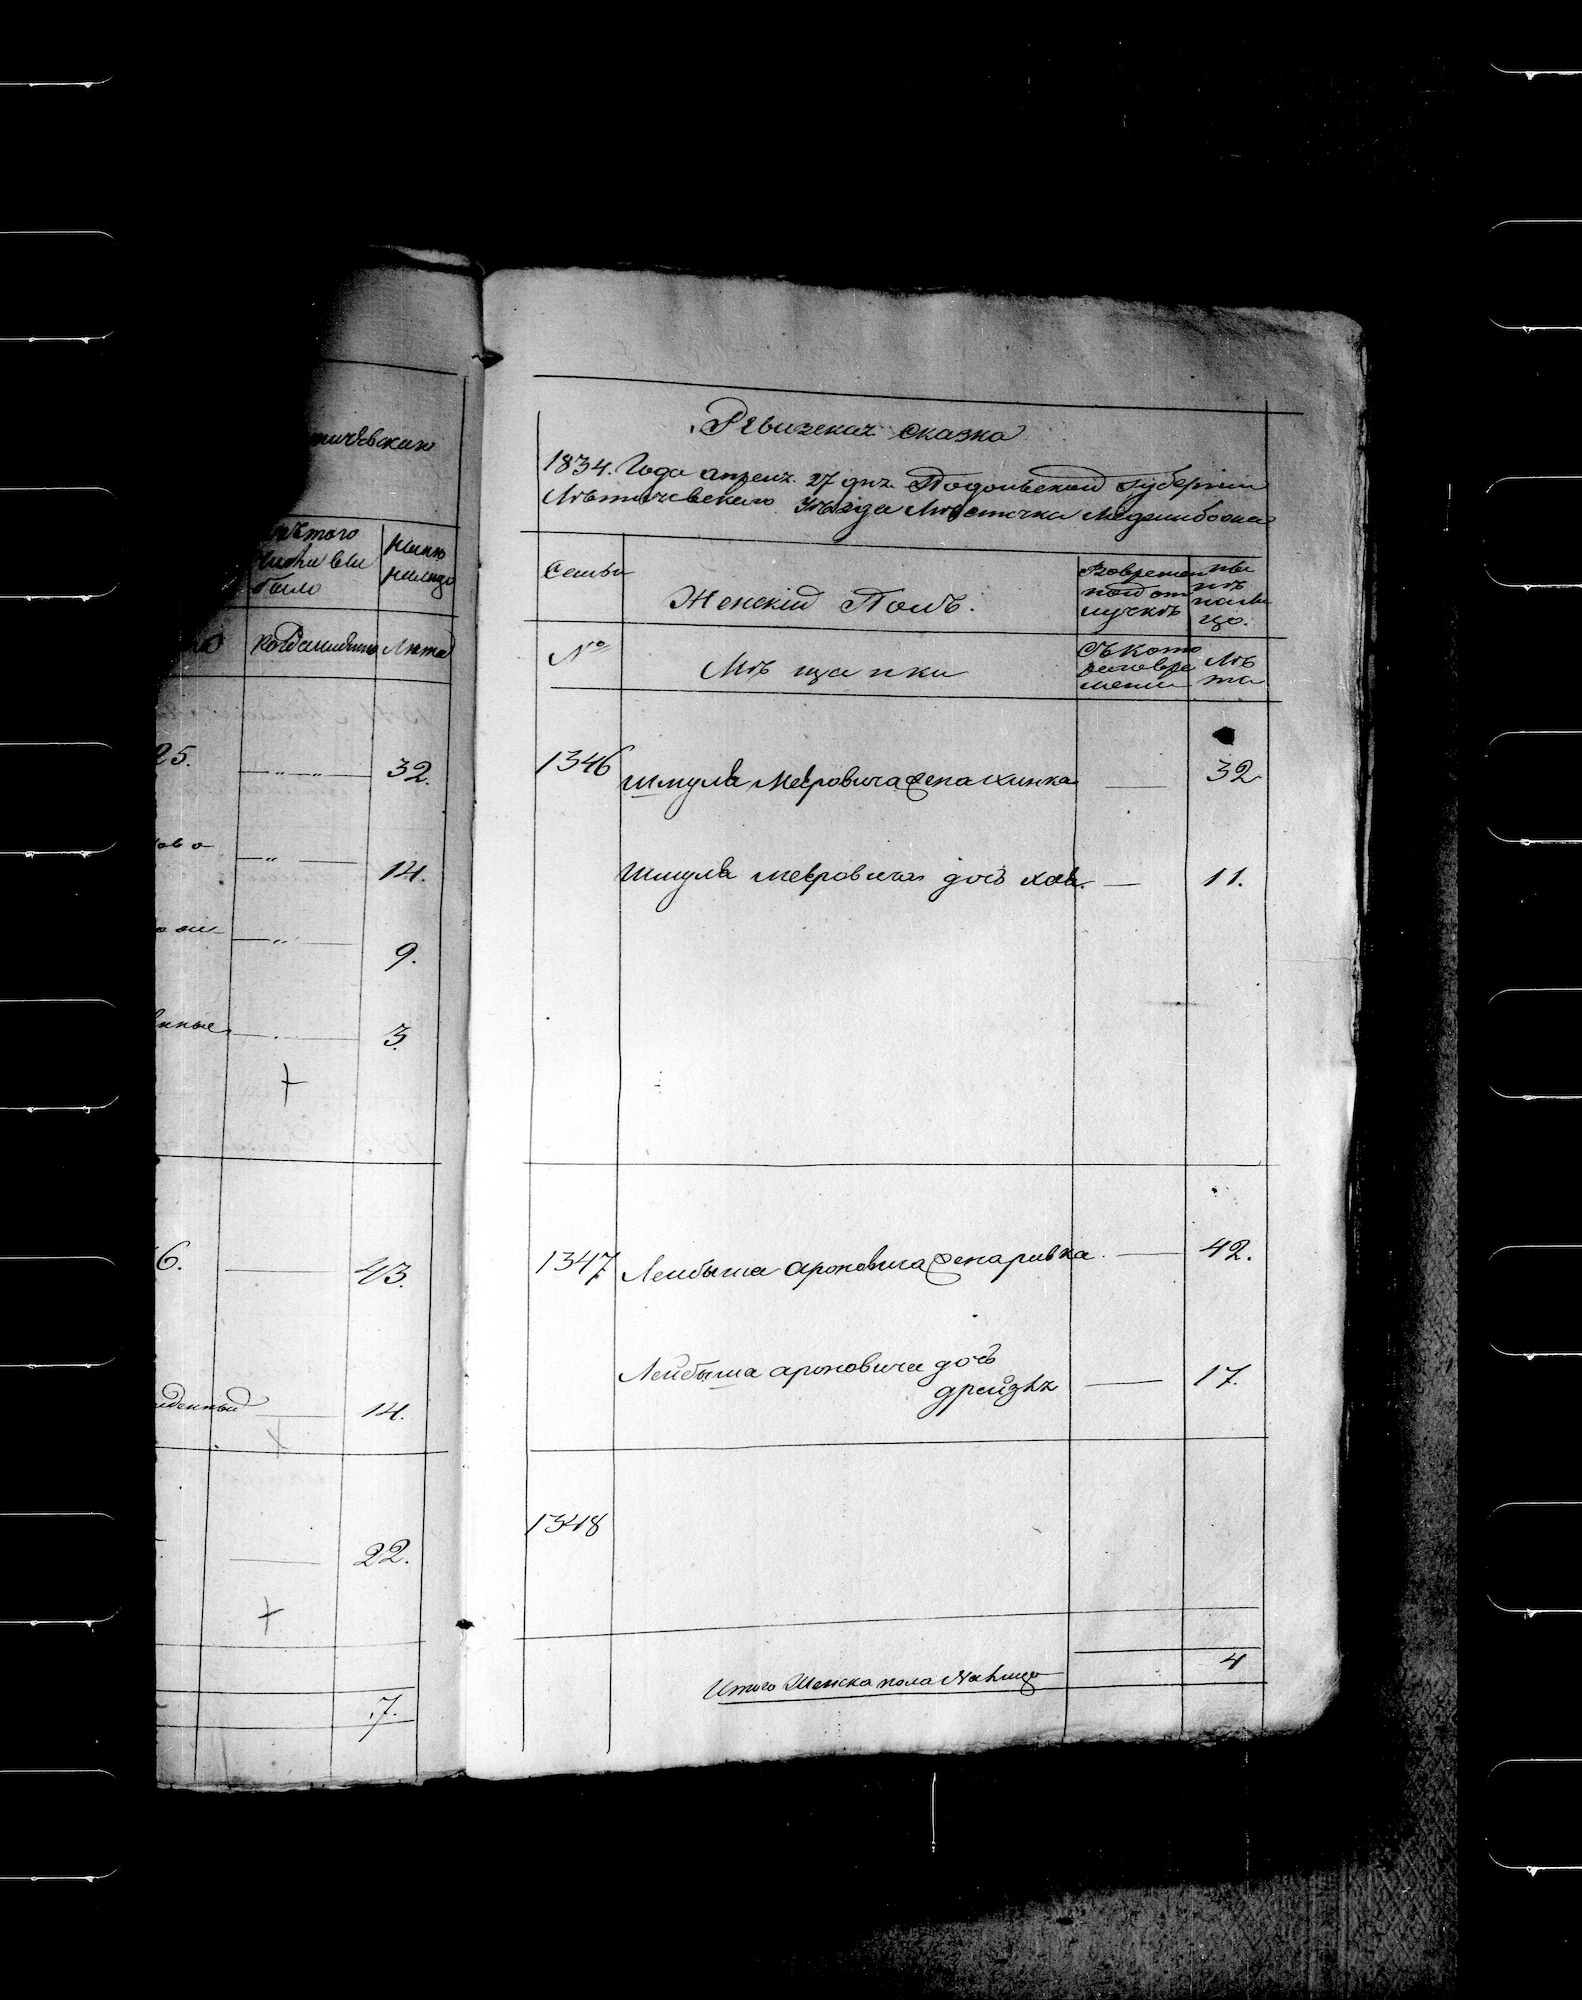 тичевскаго
ныне
налицо
было
Лета
25.
32.
14.
9.
3.
6.
43.
14.
22.
7.
Ревизская сказка
1834. Года апреля 27 дня. Подольской Губернии
Летичевскаго Уезда Местечка Меджибожа
Семьи
Женский Полъ.
Временной отлучке
ныне на лицо.
№
Мѣщанки
Съ которого времени
Лѣта
1346
Шмуля Мееровича жена Хинка
32
Шмуля Мееровича дочь Хая.
11.
1347
Лейбыша Ароновича жена Ривка
42.
Лейбыша Ароновича дочь
Дрейзя
17.
1348
Итого Женска пола На лицо
4